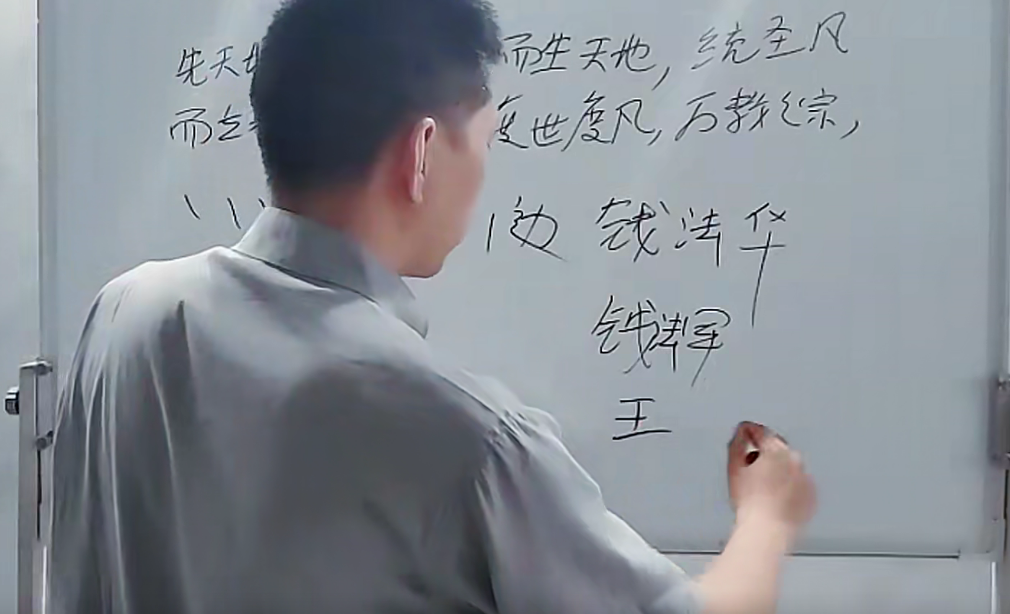 先天地 而生天地，统圣凡
而立 度世度凡，万教之宗，
钱法华
钱法军
王